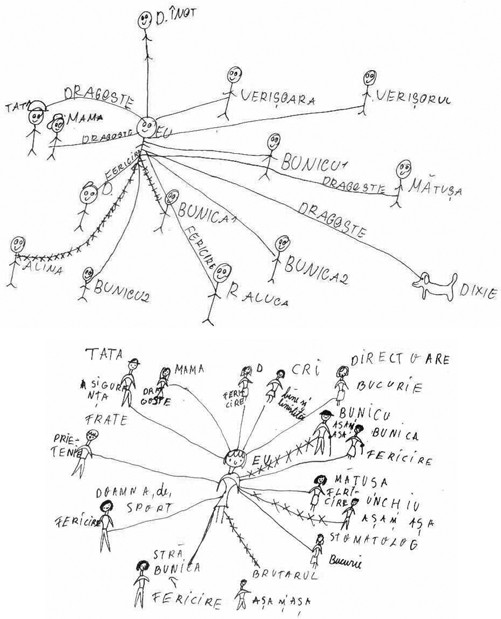 D. ÎNOT
DRAGOSTE
TATA
MAMA
DRAGOSTE
EU
VERIȘOARA
VERIȘORUL
FERICIRE
D.
BUNICU1
DRAGOSTE
MĂTUȘA
BUNICA1
DRAGOSTE
FERICIRE
ALINA
BUNICU2
RALUCA
BUNICA2
DIXIE
TATA
MAMA
D
CRI
DIRECTOARE
ASIGURA
NȚA
DRA
GOSTE
FERI
CIRE
BUCURIE
FRATE
BUNICU
AȘA M
AȘA
BUNICA
FERICIRE
PRIE-
TENIE
EU
MĂTUȘA
FERI-
CIRE
UNCHIU
AȘA M AȘA
DOAMNA, de,
SPORT
FERICIRE
STOMATOLOG
Bucurie
STRĂ
BUNICA
FERICIRE
BRUTARUL
AȘA M AȘA